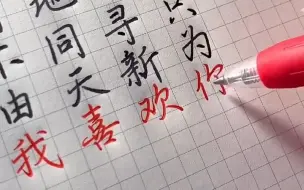 地
同寻只
由天新为
我喜欢你